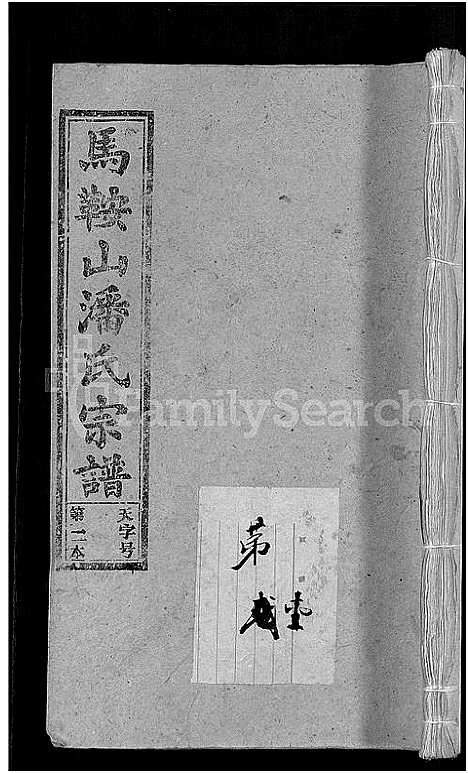 馬鞍山潘氏宗譜
天字号
第二本
FamilySearch
第